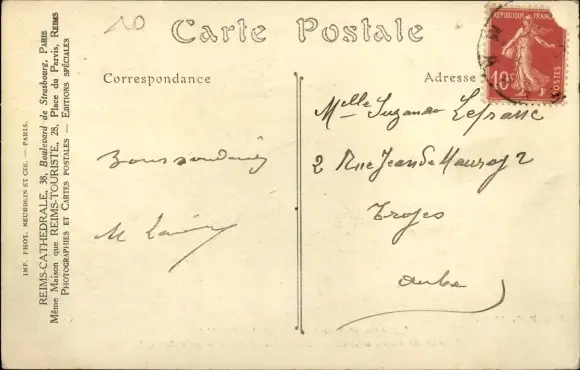 10
Carte Postale
Correspondance
Adresse
RÉPUBLIQUE FRANÇ
10c
POSTES
Melle Suzanne Lefranc
2 Rue Jean de Mauroy 2
Troyes
Aube
Bons souvenirs
M
IMP. PHOT. NEURDEIN ET CIE. — PARIS.
REIMS-CATHÉDRALE, 38, Boulevard de Strasbourg, PARIS
Même Maison que REIMS-TOURISTE, 28, Place du Parvis, REIMS
PHOTOGRAPHIES ET CARTES POSTALES — EDITIONS SPÉCIALES